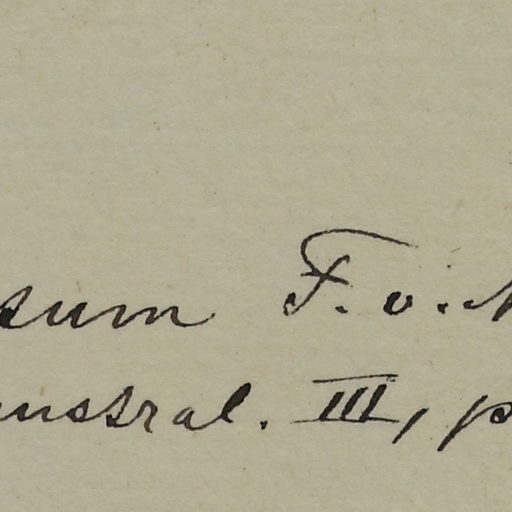 sum F. v. M
austral. III, p